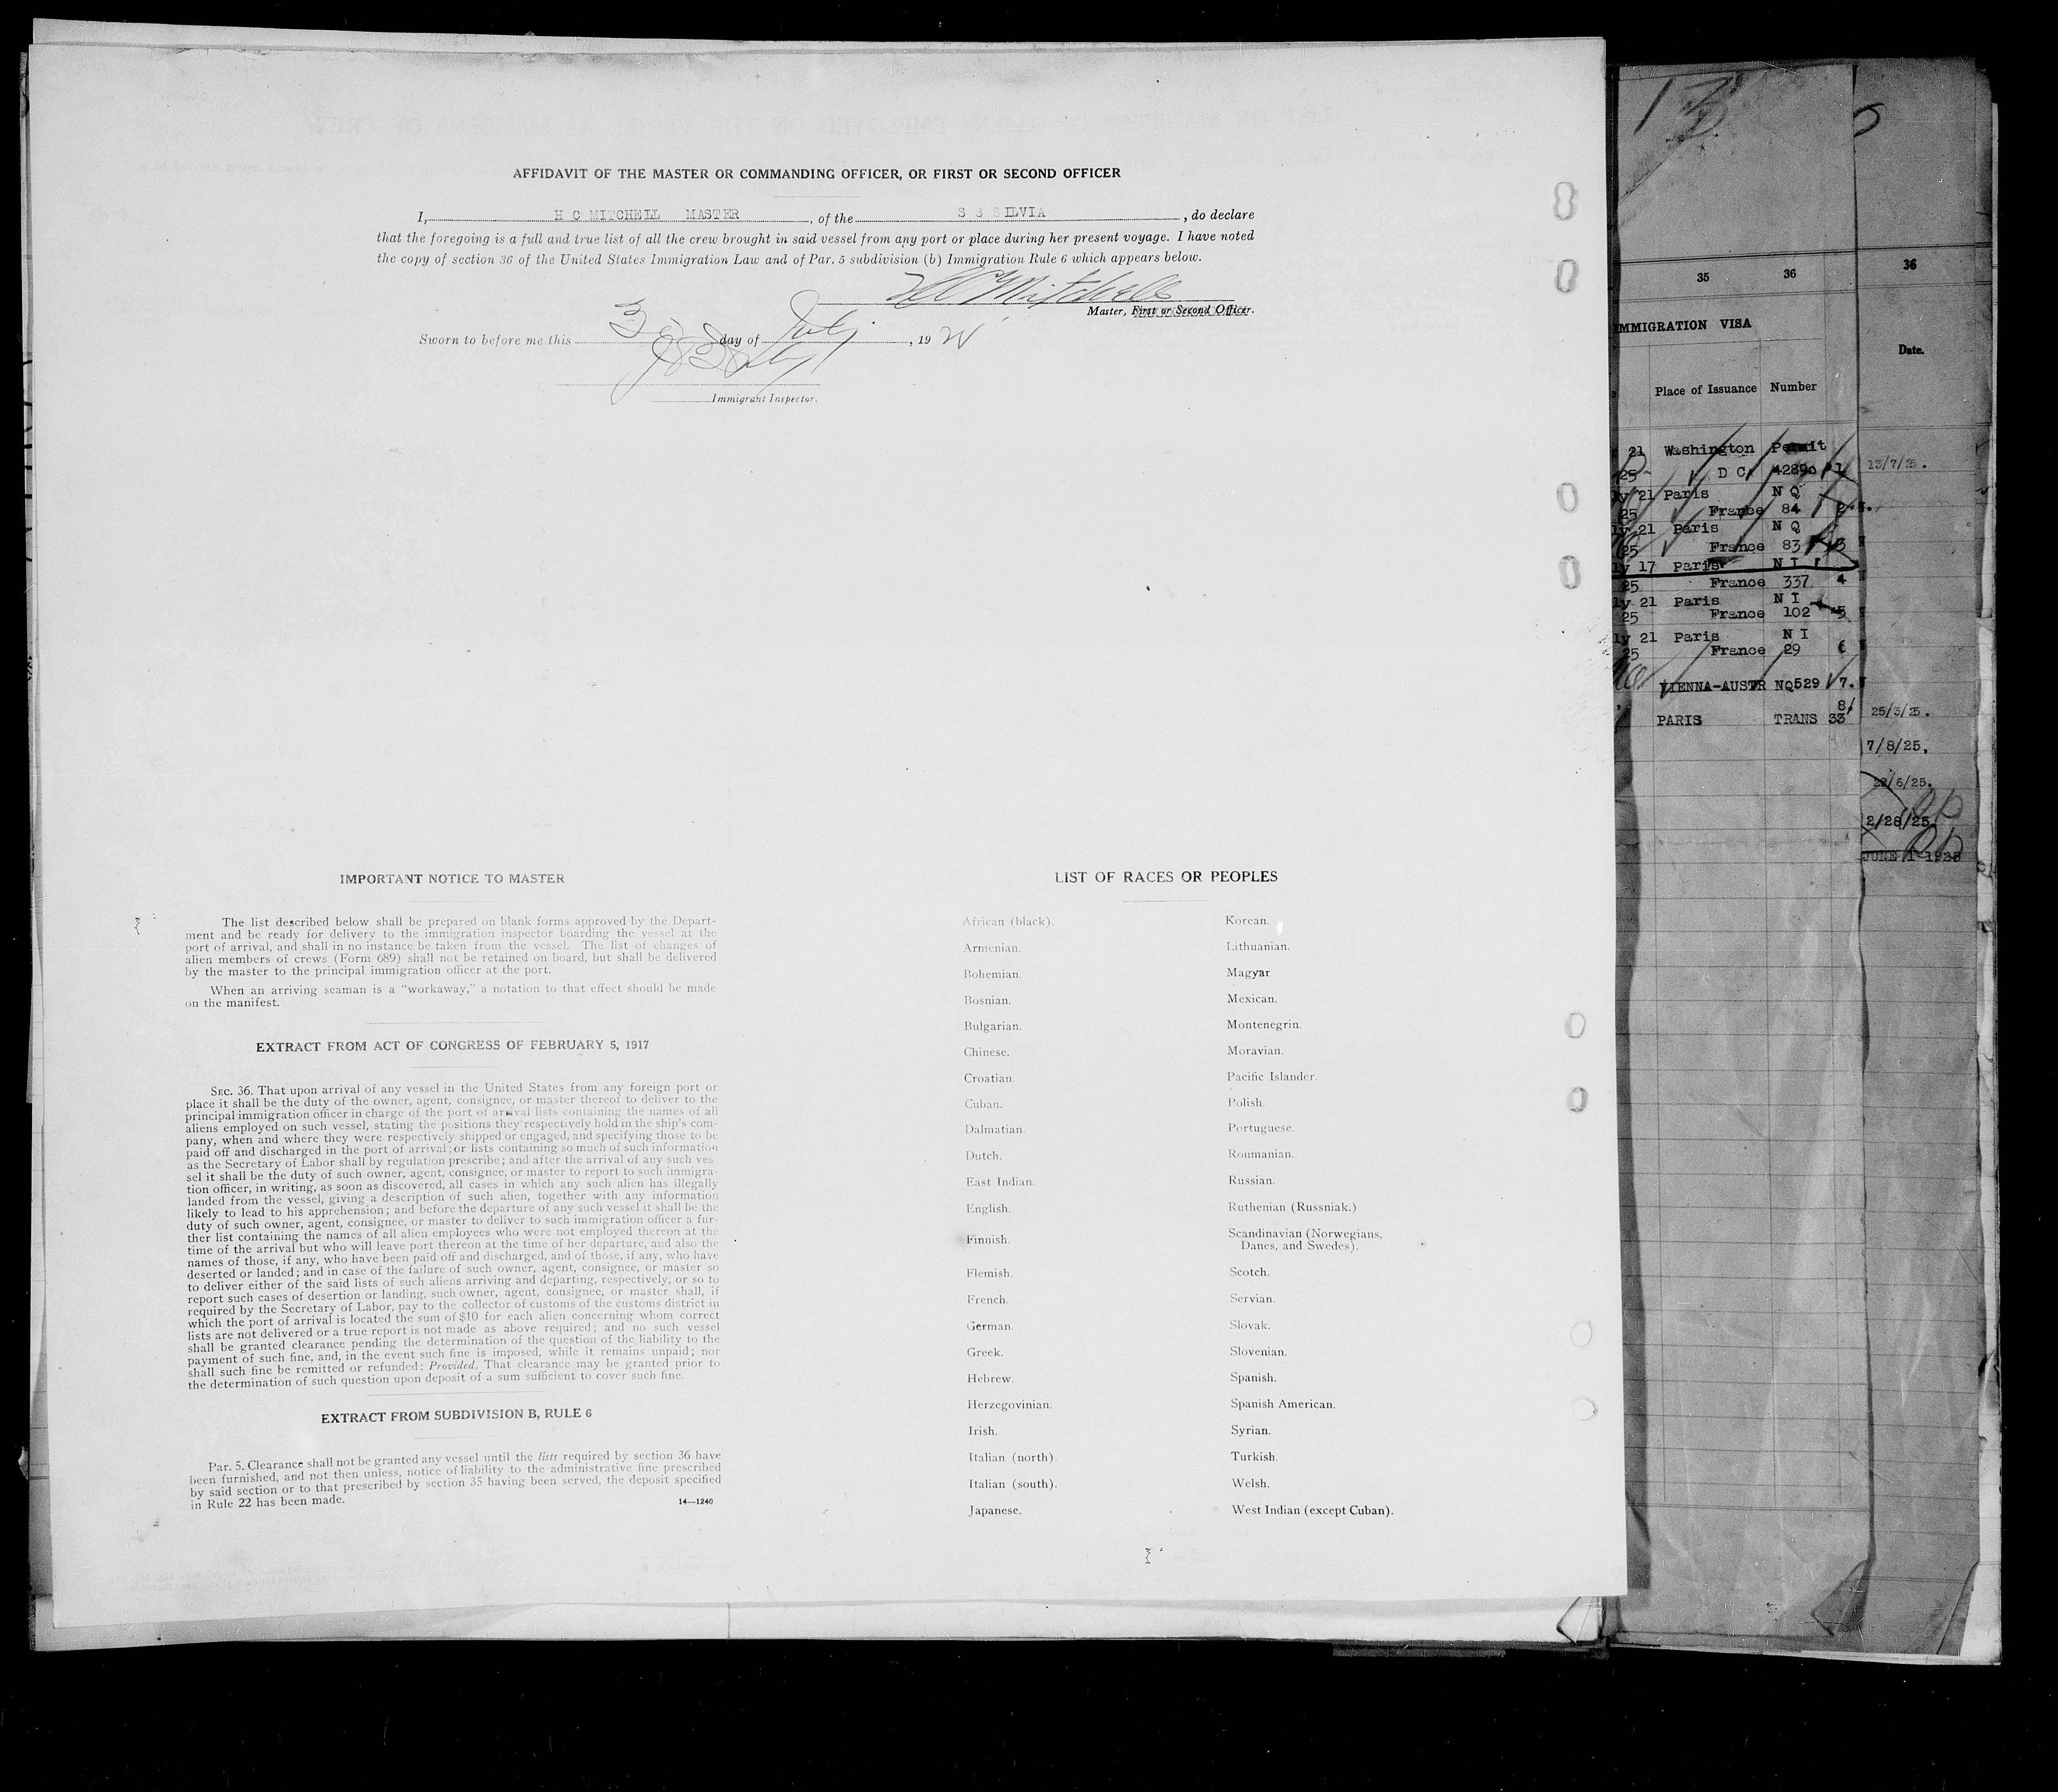 AFFIDAVIT OF THE MASTER OR COMMANDING OFFICER, OR FIRST OR SECOND OFFICER
I, H C MITCHELL MASTER, of the S S SILVIA, do declare
that the foregoing is a full and true list of all the crew brought in said vessel from any port or place during her present voyage. I have noted
the copy of section 36 of the United States Immigration Law and of Par. 5 subdivision (b) Immigration Rule 6 which appears below.
H C Mitchell
Master, First or Second Officer.
Sworn to before me this 3 day of July, 19
Immigrant Inspector.
IMPORTANT NOTICE TO MASTER
The list described below shall be prepared on blank forms approved by the Depart-
ment and be ready for delivery to the immigration inspector boarding the vessel at the
port of arrival, and shall in no instance be taken from the vessel. The list of changes of
alien members of crews (Form 689) shall not be retained on board, but shall be delivered
by the master to the principal immigration officer at the port.
When an arriving seaman is a "workaway," a notation to that effect should be made
on the manifest.
EXTRACT FROM ACT OF CONGRESS OF FEBRUARY 5, 1917
SEC. 36. That upon arrival of any vessel in the United States from any foreign port or
place it shall be the duty of the owner, agent, consignee, or master thereof to deliver to the
principal immigration officer in charge of the port of arrival lists containing the names of all
aliens employed on such vessel, stating the positions they respectively hold in the ship's com-
pany, when and where they were respectively shipped or engaged, and specifying those to be
paid off and discharged in the port of arrival; or lists containing so much of such information
as the Secretary of Labor shall by regulation prescribe; and after the arrival of any such ves-
sel it shall be the duty of such owner, agent, consignee, or master to report to such immigra-
tion officer, in writing, as soon as discovered, all cases in which any such alien has illegally
landed from the vessel, giving a description of such alien, together with any information
likely to lead to his apprehension; and before the departure of any such vessel it shall be the
duty of such owner, agent, consignee, or master to deliver to such immigration officer a fur-
ther list containing the names of all alien employees who were not employed thereon at the
time of the arrival but who will leave port thereon at the time of her departure, and also the
names of those, if any, who have been paid off and discharged, and of those, if any, who have
deserted or landed; and in case of the failure of such owner, agent, consignee, or master so
to deliver either of the said lists of such aliens arriving and departing, respectively, or so to
report such cases of desertion or landing, such owner, agent, consignee, or master shall, if
required by the Secretary of Labor, pay to the collector of customs of the customs district in
which the port of arrival is located the sum of $10 for each alien concerning whom correct
lists are not delivered or a true report is not made as above required; and no such vessel
shall be granted clearance pending the determination of the question of the liability to the
payment of such fine, and, in the event such fine is imposed, while it remains unpaid; nor
shall such fine be remitted or refunded: Provided, That clearance may be granted prior to
the determination of such question upon deposit of a sum sufficient to cover such fine.
EXTRACT FROM SUBDIVISION B, RULE 6
Par. 5. Clearance shall not be granted any vessel until the lists required by section 36 have
been furnished, and not then unless, notice of liability to the administrative fine prescribed
by said section or to that prescribed by section 35 having been served, the deposit specified
in Rule 22 has been made.
14—1240
LIST OF RACES OR PEOPLES
African (black).
Armenian.
Bohemian.
Bosnian.
Bulgarian.
Chinese.
Croatian.
Cuban.
Dalmatian.
Dutch.
East Indian.
English.
Finnish.
Flemish.
French.
German.
Greek.
Hebrew.
Herzegovinian.
Irish.
Italian (north).
Italian (south).
Japanese.
Korean.
Lithuanian.
Magyar
Mexican.
Montenegrin.
Moravian.
Pacific Islander.
Polish.
Portuguese.
Roumanian.
Russian.
Ruthenian (Russniak.)
Scandinavian (Norwegians,
Danes, and Swedes).
Scotch.
Servian.
Slovak.
Slovenian.
Spanish.
Spanish American.
Syrian.
Turkish.
Welsh.
West Indian (except Cuban).
35 36
IMMIGRATION VISA
Place of Issuance Number
21 Washington Permit
25 D C 42890 1
21 Paris N Q
25 France 84 2
21 Paris N Q
25 France 83 3
17 Paris N I
25 France 337 4
21 Paris N I
25 France 102 5
21 Paris N I
25 France 29 6
VIENNA-AUSTR NQ529 7.
8
PARIS TRANS 33
36
Date.
13/7/25.
25/3/25.
7/8/25.
22/6/25.
2/28/25.
JUNE 1-1925